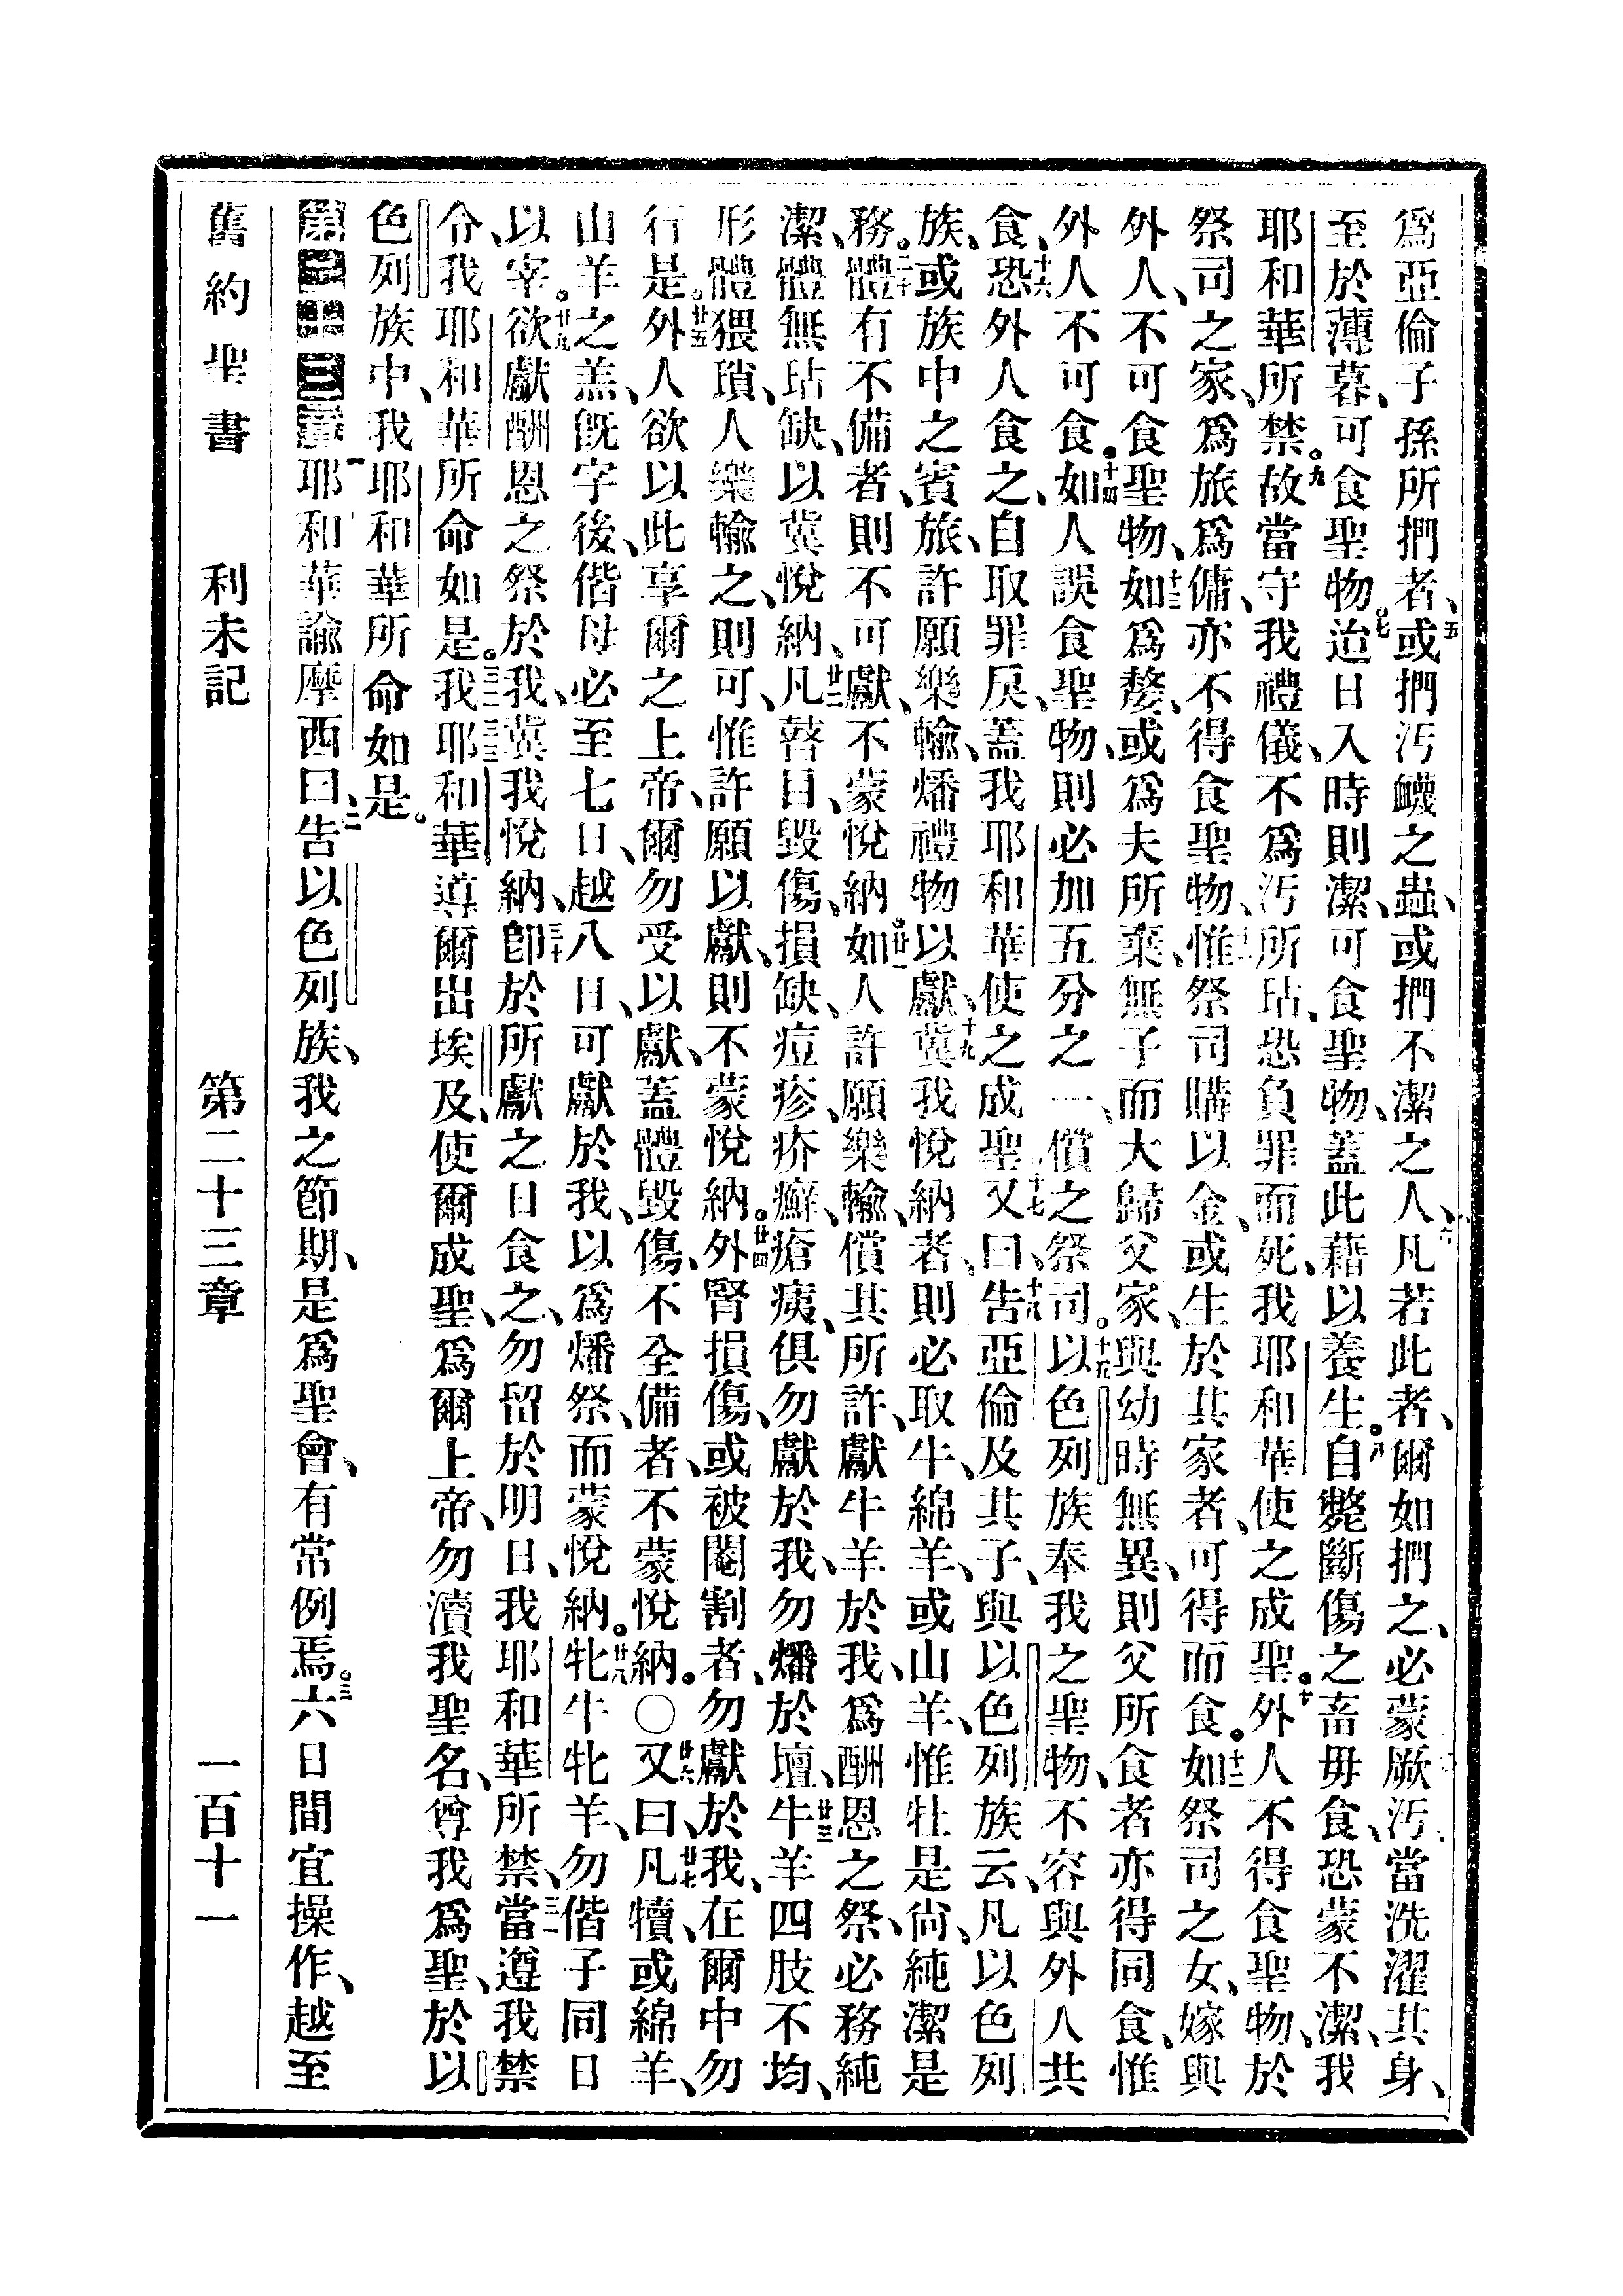 爲亞倫子孫所捫者、五或捫汚衊之蟲、或捫不潔之人、六凡若此者、爾如捫之、必蒙厥汚、當洗濯其身、
至於薄暮、可食聖物。七迨日入時則潔、可食聖物、蓋此藉以養生。八自斃斷傷之畜毋食、恐蒙不潔、我
耶和華所禁。九故當守我禮儀、不爲汚所玷、恐負罪而死、我耶和華使之成聖。十外人不得食聖物、於
祭司之家、爲旅爲傭、亦不得食聖物、十一惟祭司購以金、或生於其家者、可得而食。十二如祭司之女、嫁與
外人、不可食聖物、十三如爲嫠、或爲夫所棄、無子而大歸父家、與幼時無異、則父所食者亦得同食、惟
外人不可食。十四如人誤食聖物、則必加五分之一、償之祭司。十五以色列族奉我之聖物、不容與外人共
食、十六恐外人食之、自取罪戾、蓋我耶和華使之成聖、十七又曰、十八告亞倫及其子、與以色列族云、凡以色列
族、或族中之賓旅、許願樂輸、燔禮物以獻、十九冀我悅納者、則必取牛、綿羊、或山羊、惟牡是尙、純潔是
務。二十體有不備者、則不可獻、不蒙悅納。廿一如人許願樂輸、償其所許、獻牛羊於我、爲酬恩之祭、必務純
潔、體無玷缺、以冀悅納、廿二凡瞽目、毀傷、損缺、痘疹、疥癬、瘡痍、俱勿獻於我、勿燔於壇、廿三牛羊四肢不均、
形體猥瑣、人樂輸之、則可、惟許願以獻、則不蒙悅納。廿四外腎損傷、或被閹割者、勿獻於我、在爾中勿
行是。廿五外人欲以此享爾之上帝、爾勿受以獻、蓋體毀傷、不全備者、不蒙悅納。〇廿六又曰、廿七凡犢、或綿羊、
山羊之羔、旣字後、偕母必至七日、越八日、可獻於我、以爲燔祭、而蒙悅納。廿八牝牛牝羊、勿偕子同日
以宰。廿九欲獻酬恩之祭於我、冀我悅納、三十卽於所獻之日食之、勿留於明日、我耶和華所禁、三一當遵我禁
令、我耶和華所命如是。三二我耶和華導爾出埃及、使爾成聖、爲爾上帝、勿瀆我聖名、尊我爲聖、於以
色列族中、我耶和華所命如是。
第二十三章一耶和華諭摩西曰、二告以色列族、我之節期、是爲聖會、有常例焉。三六日間宜操作、越至
舊約聖書　利未記　第二十三章　一百十一